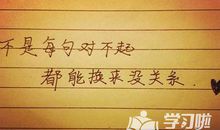 不是每句对不起
都能换来没关系.
学习啦